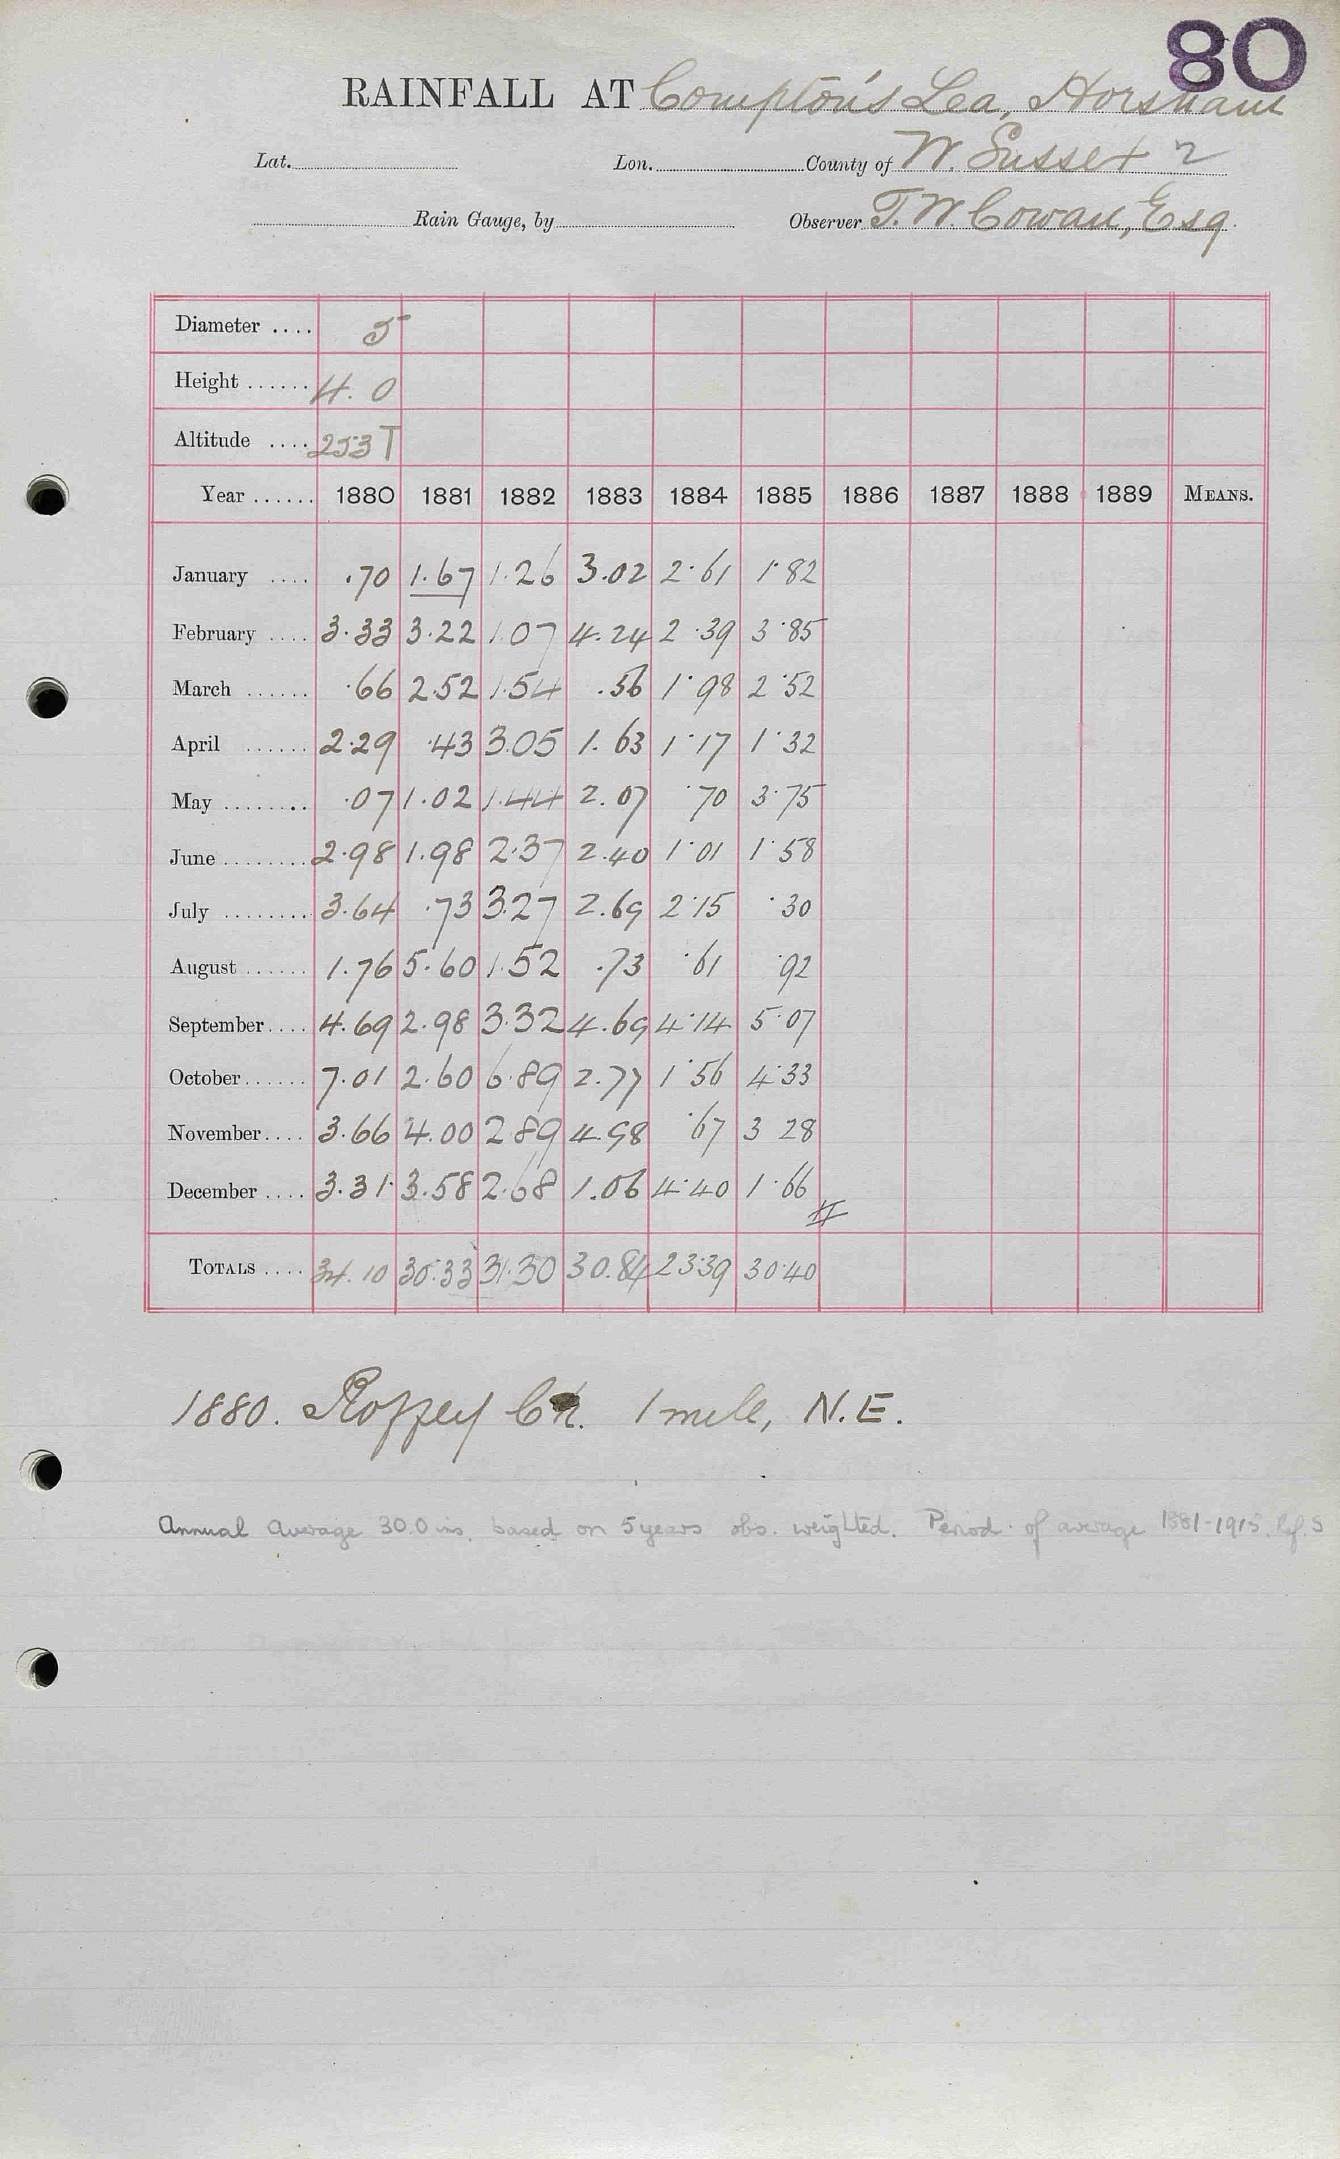 80
RAINFALL AT Compton's Lea, Horsham
Lat. Lon. County of W. Sussex 2
Rain Gauge, by Observer T. W. Cowan, Esq.
Diameter .... 5
Height ...... 4. 0
Altitude .... 253 T
Year ...... 1880 1881 1882 1883 1884 1885 1886 1887 1888 1889 MEANS.
January .... .70 1.67 1.26 3.02 2.61 1.82
February .... 3.33 3.22 1.07 4.24 2.39 3.85
March ...... .66 2.52 1.54 .56 1.98 2.52
April ...... 2.29 .43 3.05 1.63 1.17 1.32
May ........ .07 1.02 1.44 2.07 .70 3.75
June ........ 2.98 1.98 2.37 2.40 1.01 1.58
July ........ 3.64 .73 3.27 2.69 2.15 .30
August ...... 1.76 5.60 1.52 .73 .61 .92
September .... 4.69 2.98 3.32 4.69 4.14 5.07
October ...... 7.01 2.60 6.89 2.77 1.56 4.33
November .... 3.66 4.00 2.89 4.98 .67 3 28
December .... 3.31 3.58 2.68 1.06 4.40 1.66
TOTALS .... 34.10 30.33 31.30 30.84 23.39 30.40
1880. Roffey Ch. 1 mile, N.E.
Annual average 30.0 ins. based on 5 years obs. weighted. Period of average 1881-1915. Ref. S